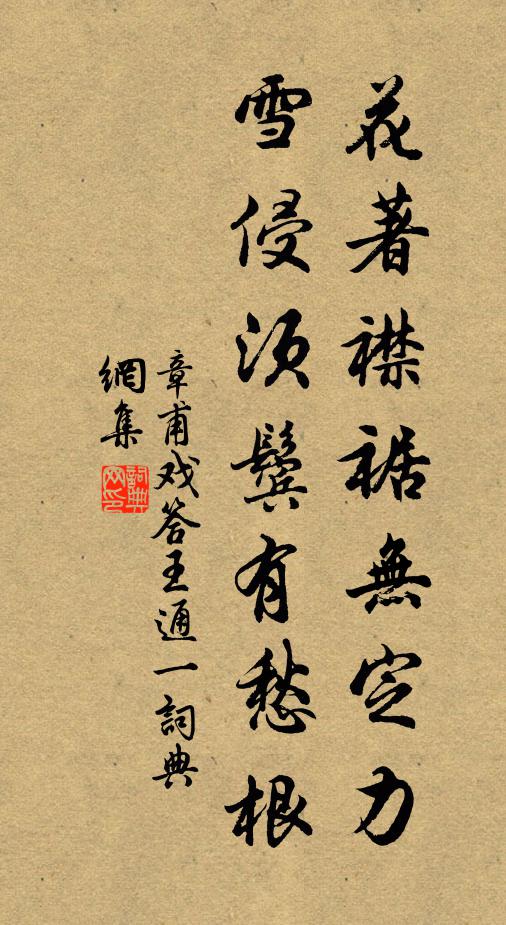 花著襟裾無定力
雪侵須鬓有愁根
章甫戏答王通一詞典
網集
詞典网印